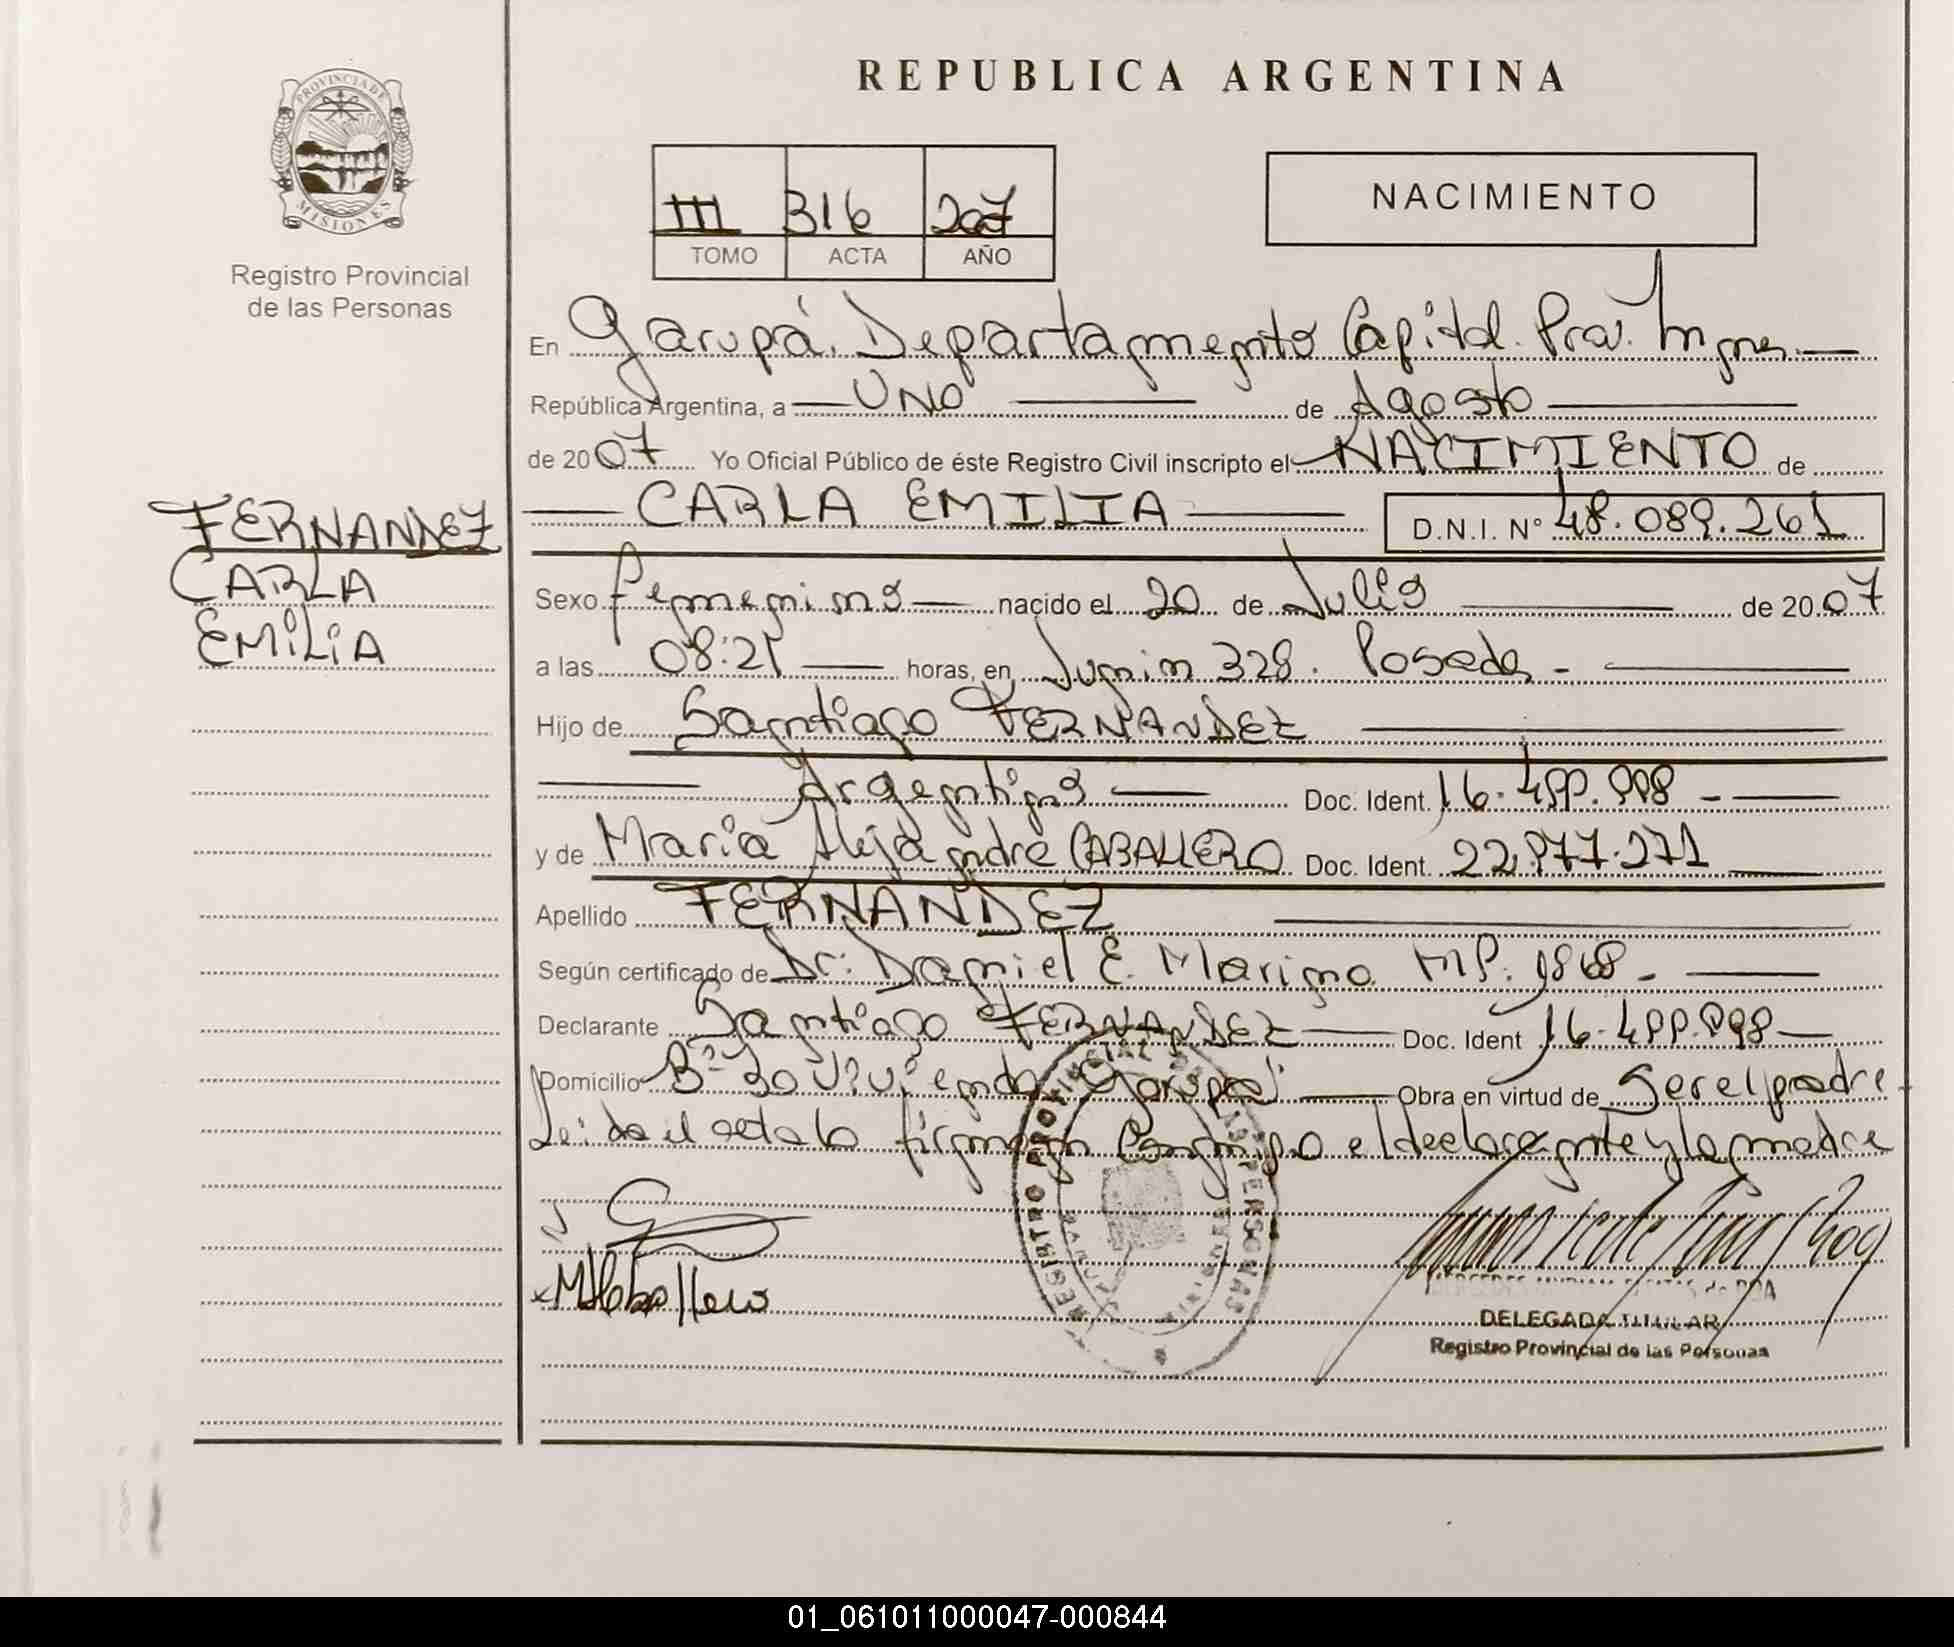 REPUBLICA ARGENTINA
PROVINCIA DE MISIONES
Registro Provincial
de las Personas
III 316 2007
TOMO ACTA AÑO
NACIMIENTO
En Garupá. Departamento Capital. Prov. Mnes.
República Argentina, a UNO de Agosto
de 2007 Yo Oficial Público de éste Registro Civil inscripto el NACIMIENTO de
CARLA EMILIA D.N.I. Nº 48.089.261
FERNANDEZ
CARLA
EMILIA
Sexo femenino nacido el 20 de Julio de 2007
a las 08:21 horas, en Junin 328. Posadas -
Hijo de Santiago FERNANDEZ
Argentino Doc. Ident. 16.499.998 -
y de María Alejandra CABALLERO Doc. Ident. 22.977.271
Apellido FERNANDEZ
Según certificado de Dr: Daniel E. Marino MP. 1868 -
Declarante Santiago FERNANDEZ Doc. Ident 16.499.998
Domicilio Bº 30 Viviendas Garupá Obra en virtud de Ser el padre
Leida el acta la firman Conmigo el declarante y la madre
MACaballero
REGISTRO PROVINCIAL DE LAS PERSONAS
DELEGADA TITULAR
Registro Provincial de las Personas
01_061011000047-000844